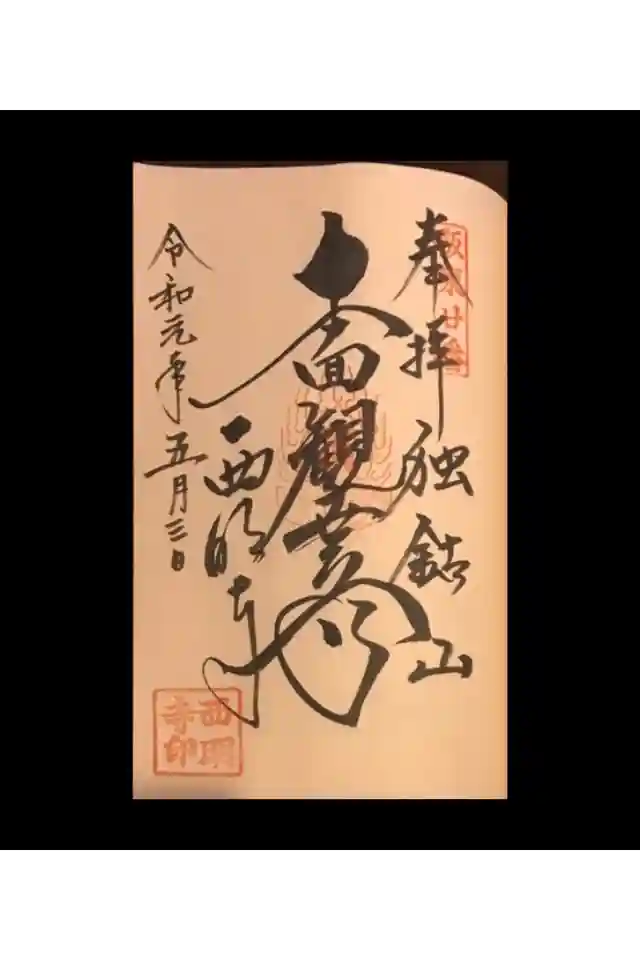 奉拝
坂東廿番
独鈷山
十一面観世音
西明寺
令和元年五月三日
西明
寺印